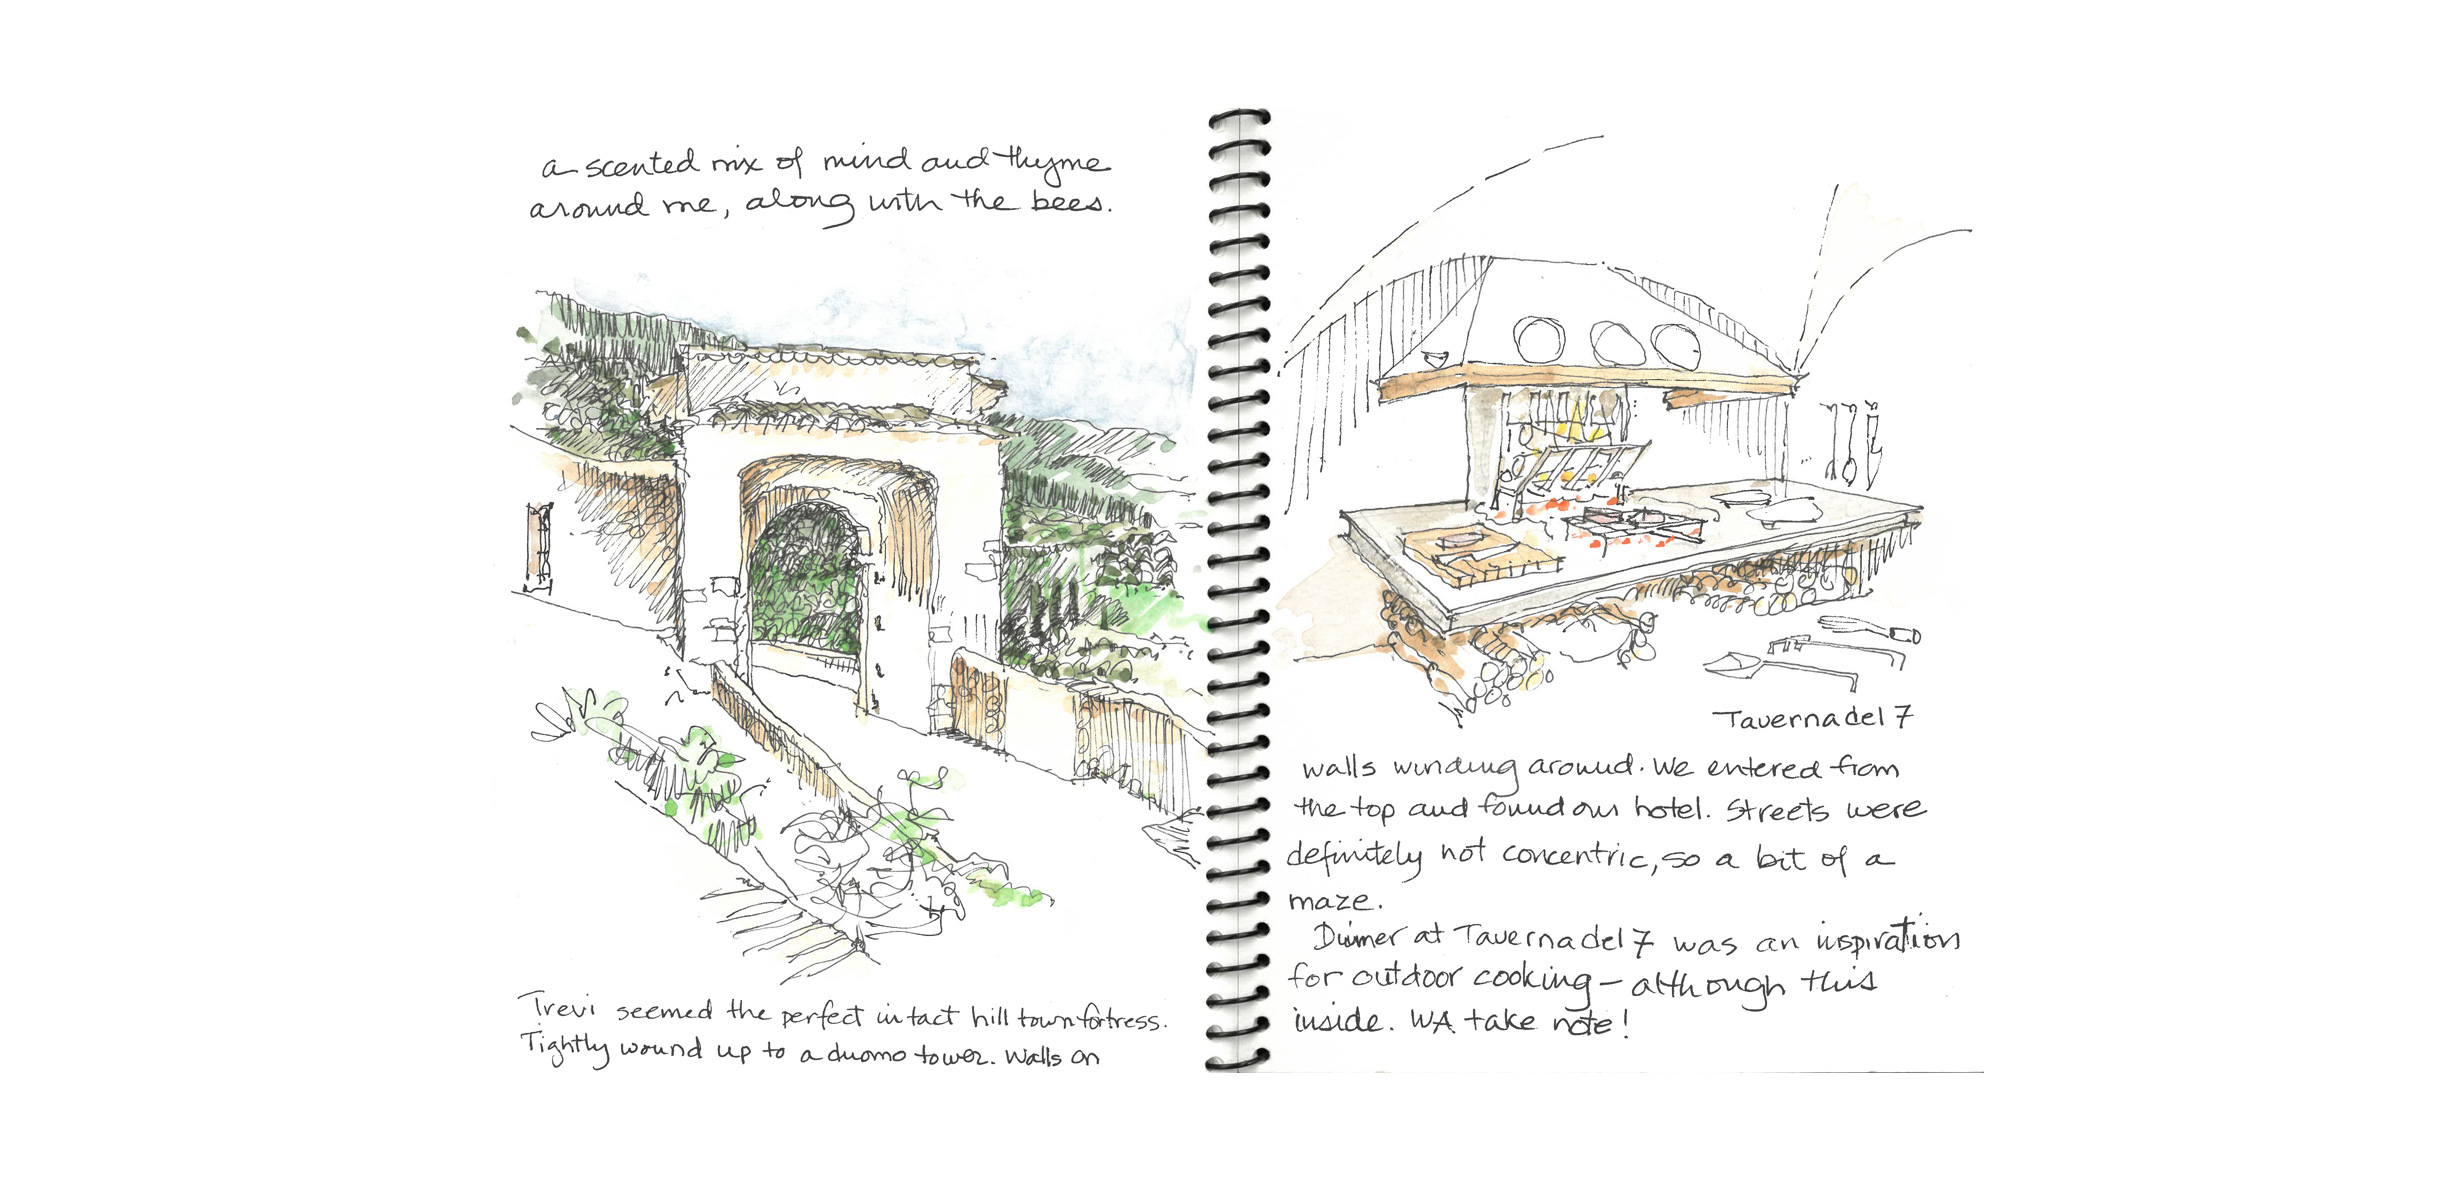 a scented mix of mind and thyme
around me, along with the bees.
Trevi seemed the perfect intact hill town fortress.
Tightly wound up to a duomo tower. Walls on
Taverna del 7
walls winding around. We entered from
the top and found our hotel. Streets were
definitely not concentric, so a bit of a
maze.
Dinner at Taverna del 7 was an inspiration
for outdoor cooking – although this
inside. WA take note!